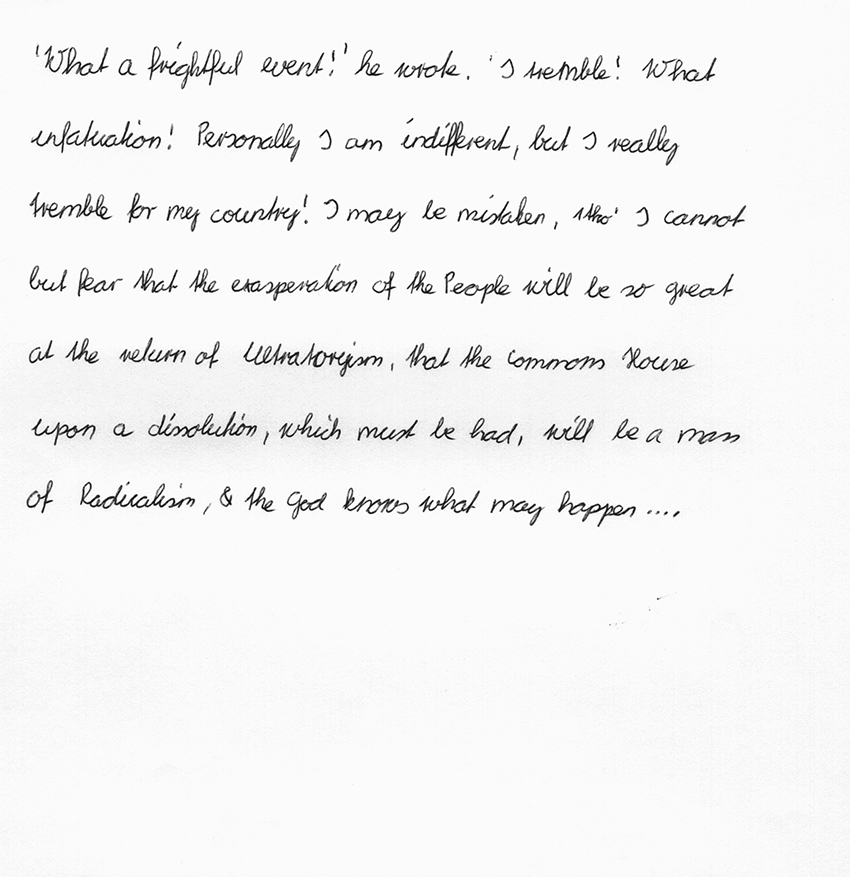 'What a frightful event!' he wrote. 'I tremble! What
infatuation! Personally I am indifferent, but I really
tremble for my country! I may be mistaken, tho' I cannot
but fear that the exasperation of the People will be so great
at the return of Ultratoryism, that the Commons House
upon a dissolution, which must be had, will be a mass
of Radicalism, & the God knows what may happen ....